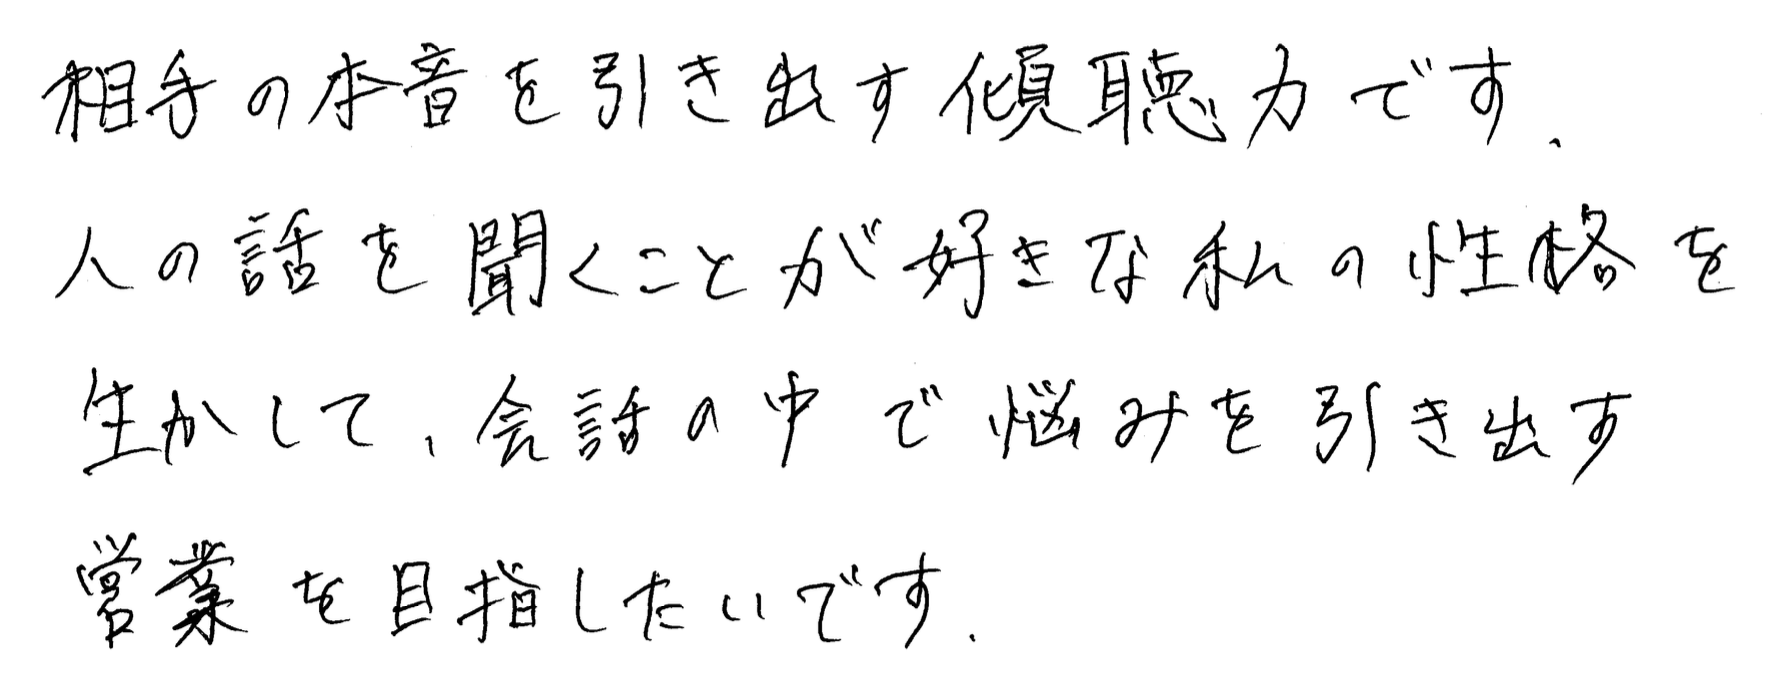 相手の本音を引き出す傾聴力です.
人の話を聞くことが好きな私の性格を
生かして、会話の中で悩みを引き出す
営業を目指したいです.